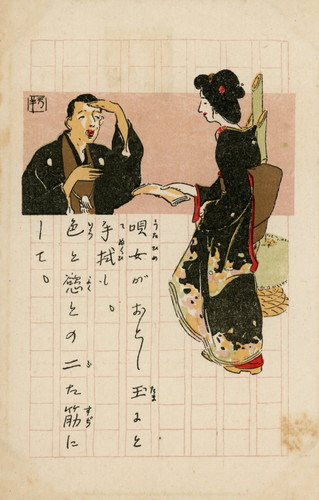 唄女がおとし玉にと
手拭も。
色と慾との二た筋に
して。